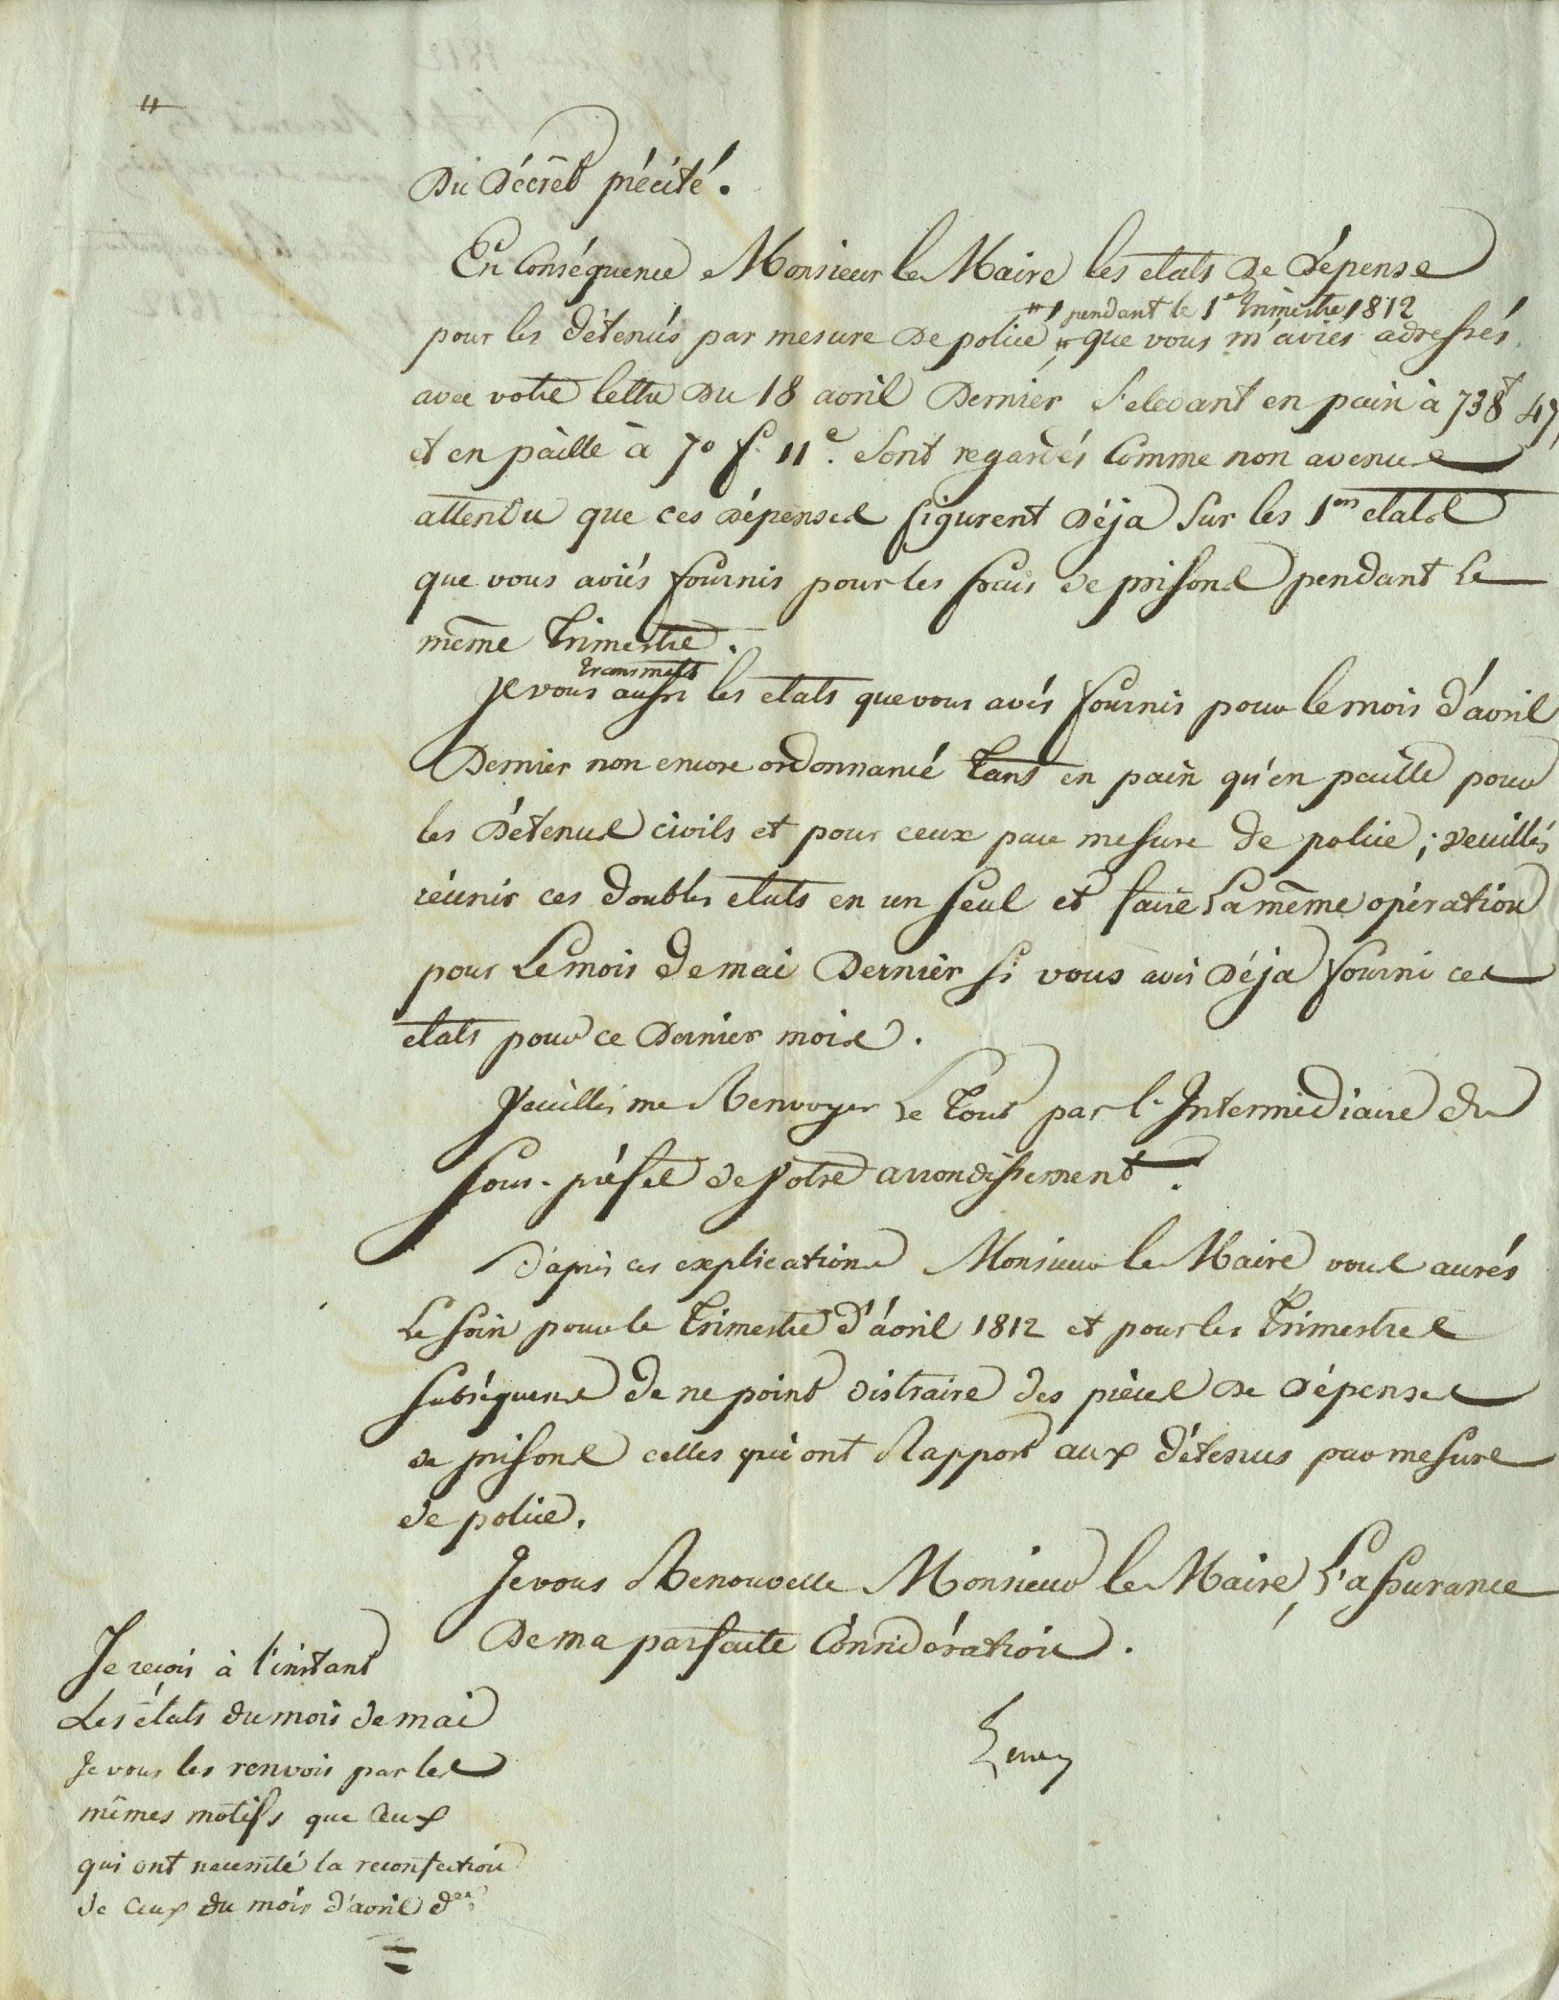 "
Du décret précité.
En Conséquence Monsieur le Maire les etats de dépense
" pendant le 1er Trimestre 1812
pour les détenus par mesure de police " que vous m'aviés adressés
avec votre lettre du 18 avril Dernier s'elevant en pain à 738f 47
et en paille à 70 f. 11c. sont regardés Comme non avenus
attendu que ces dépenses figurent déja sur les 1ers etats
que vous aviés fournis pour les frais de prisons pendant le
même Trimestre.
transmets
Je vous aussi les etats que vous avés fournis pour le mois d'avril
Dernier non encore ordonnancé tant en pain qu'en paille pour
les détenus civils et pour ceux par mesure de police; veuillés
réunir ces doubles etats en un seul et faire la même opération
pour le mois de mai Dernier si vous avés déja fourni ces
etats pour ce dernier mois.
Veuillés me Renvoyer le tout par l'Intermédiaire du
sous-préfet de votre arrondissement.
D'après ces explications Monsieur le Maire, vous aurés
le soin pour le trimestre d'avril 1812 et pour les trimestres
subséquens de ne point distraire des pièces de dépenses
de prisons celles qui ont Rapport aux détenus par mesure
de police.
Je vous Renouvelle Monsieur le Maire, L'assurance
De ma parfaite Considération.
Je reçois à l'instant
Les états du mois de mai
Je vous les renvois par les
mêmes motifs que Ceux
qui ont necessité la reconfection
de Ceux du mois d'avril der